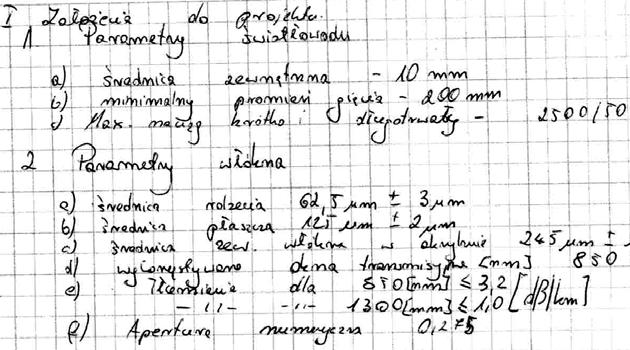 I Założenia do projektu.
1 Parametry światłowodu
a) średnica zewnętrzna - 10 mm
b) minimalny promień gięcia - 200 mm
c) Max. naciąg krótko i długotrwały - 2500/50
2 Parametry włókna
a) średnica rdzenia 62,5 μm ± 3 μm
b) średnica płaszcza 125 μm ± 2 μm
c) średnica zew. włókna w akrylnie 245 μm ±
d) wykorzystywane okna transmisyjne [nm] 850
e) Tłumienie dla 850 [nm] ≤ 3,2
-,,- -,,- 1300 [nm] ≤ 1,0 [dB/km]
f) Apertura numeryczna 0,275